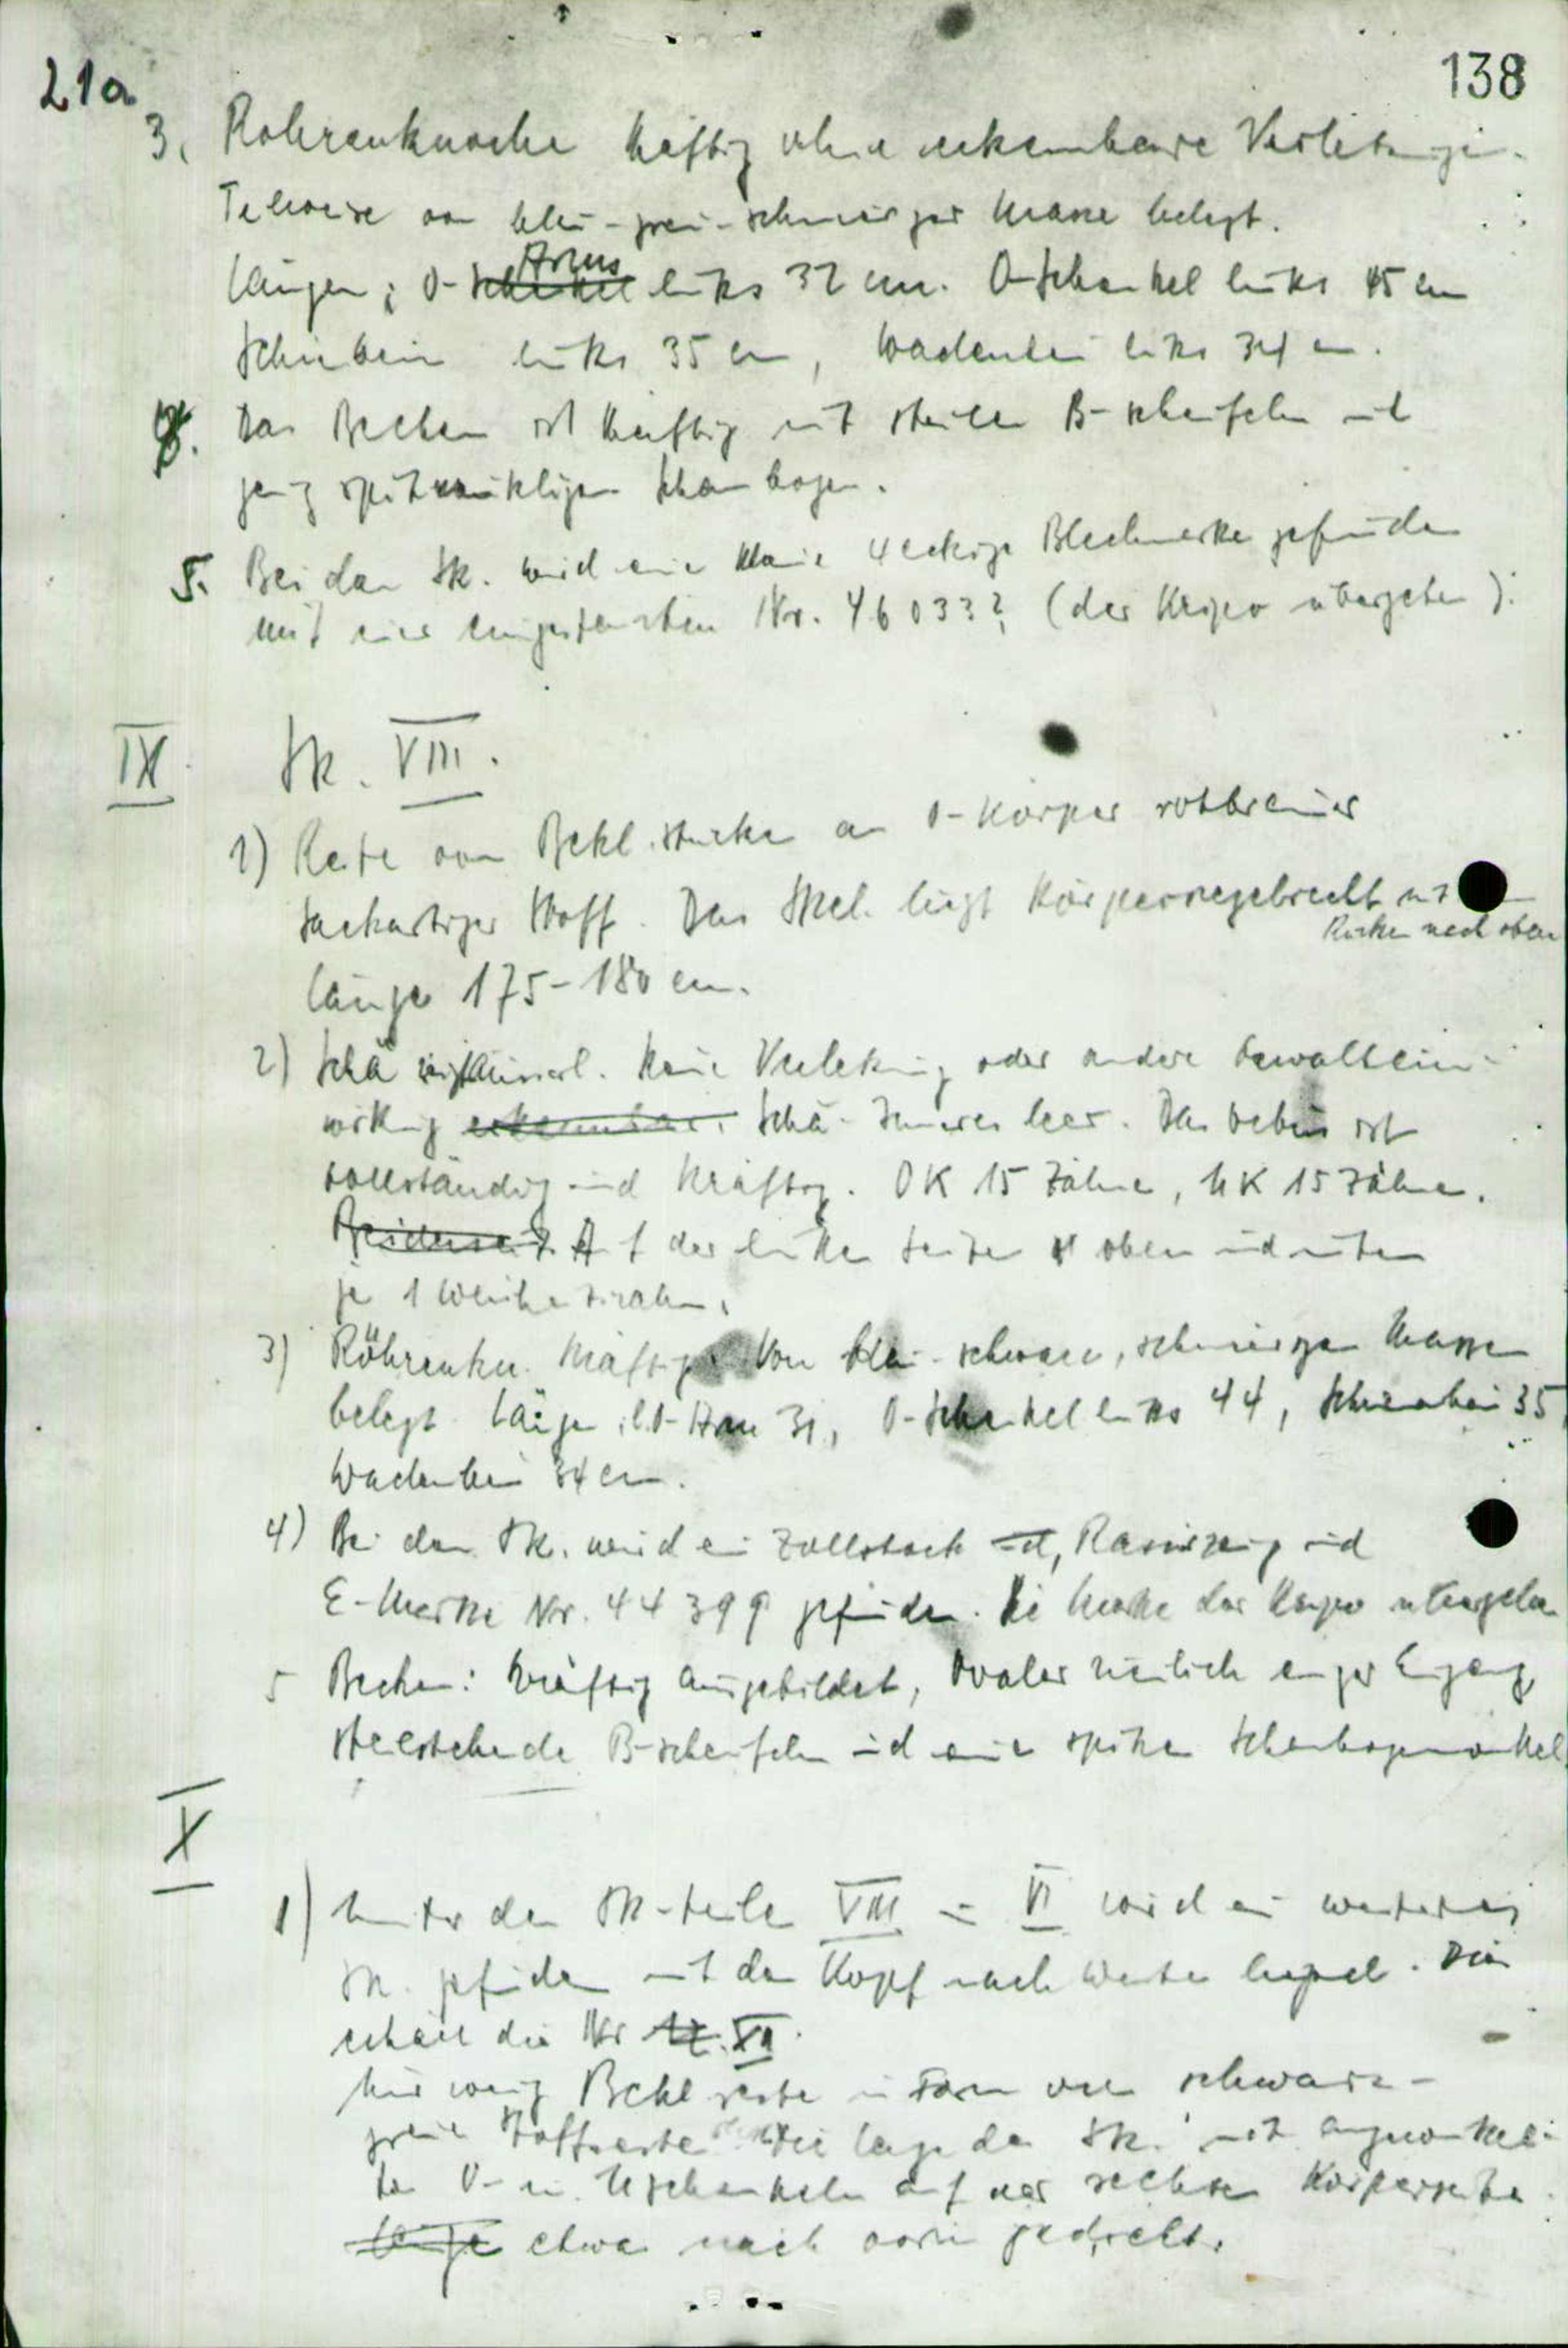 21a
138
3. Röhrenknochen kräftig ohne erkennbare Verletzungen.
Teilweise von blau-grau-schmieriger Masse belegt.
Längen: O-Schenkel Arms links 32 cm. O-Schenkel links 45 cm
Schienbein links 35 cm, Wadenbein links 34 cm.
4. Das Becken ist kräftig mit steilen B-schaufeln mit
ganz spitzwinkligen Schambogen.
5. Bei dem Sk. wird eine kleine 4eckige Blechmarke gefunden
mit einer eingestanzten Nr. 46033? (der Kripo übergeben).
IX Sk. VIII.
1) Reste von Bekl.stücken am O-Körper rotbrauner
sackartiger Stoff. Das Skel. liegt körpergerecht mit
Rücken nach oben
Länge 175-180 cm.
2) Schä. Keine Verletzung oder andere Gewaltein-
wirkung erkennbar. Schä-Inneres leer. Das Gebiss ist
vollständig und kräftig. OK 15 Zähne, UK 15 Zähne.
Beiderseits Auf der linken Seite oben und unten
je 1
3) Röhrenkn. kräftig. Von blau-schwarz, schmierigen Masse
belegt. Länge: l. O-Arm 31, O-Schenkel links 44, Schienbein 35
Wadenbein 34 cm.
4) Bei dem Sk. wird ein Zollstock und, Rasierzeug und
E-Marke Nr. 44399 gefunden. Die Marke der Kripo übergeben
5 Becken: kräftig ausgebildet, ovaler ziemlich enger Eingang,
steilstehende B-schaufeln und ein spitzer Schambogenwinkel
X
1) Unter den Sk-teilen VIII u. VI wird ein weiteres
Sk. gefunden mit dem Kopf nach Westen liegend. Dies
erhält die Nr. XII.
Nur wenig Bekl reste in Form von schwarz-
grauen Stoffreste Die Lage des Sk. mit angewinkel-
ten O- u. Uschenkeln auf der rechten Körperseite
Länge etwas nach vorn gedreht.